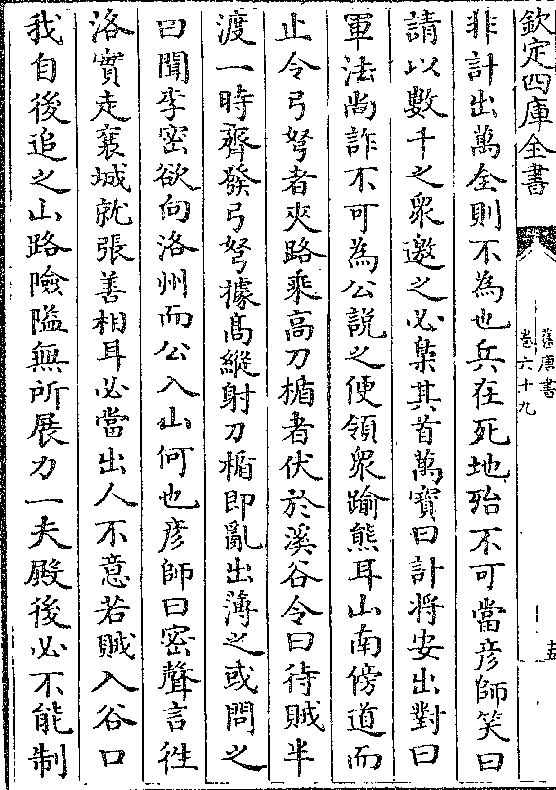 欽定四庫全書
舊唐書
卷六十九
非計出萬全則不為也兵在死地殆不可當彦師笑曰
請以數千之衆邀之必梟其首萬寳曰計將安出對曰
軍法尚詐不可為公説之便領衆踰熊耳山南傍道而
止令弓弩者夾路乘高刀楯者伏於溪谷令曰待賊半
渡一時齊發弓弩據髙縱射刀楯即亂出薄之或問之
曰聞李密欲向洛州而公入山何也彦師曰密聲言往
洛實走襄城就張善相耳必當出人不意若賊入谷口
我自後追之山路險隘無所展力一夫殿後必不能制